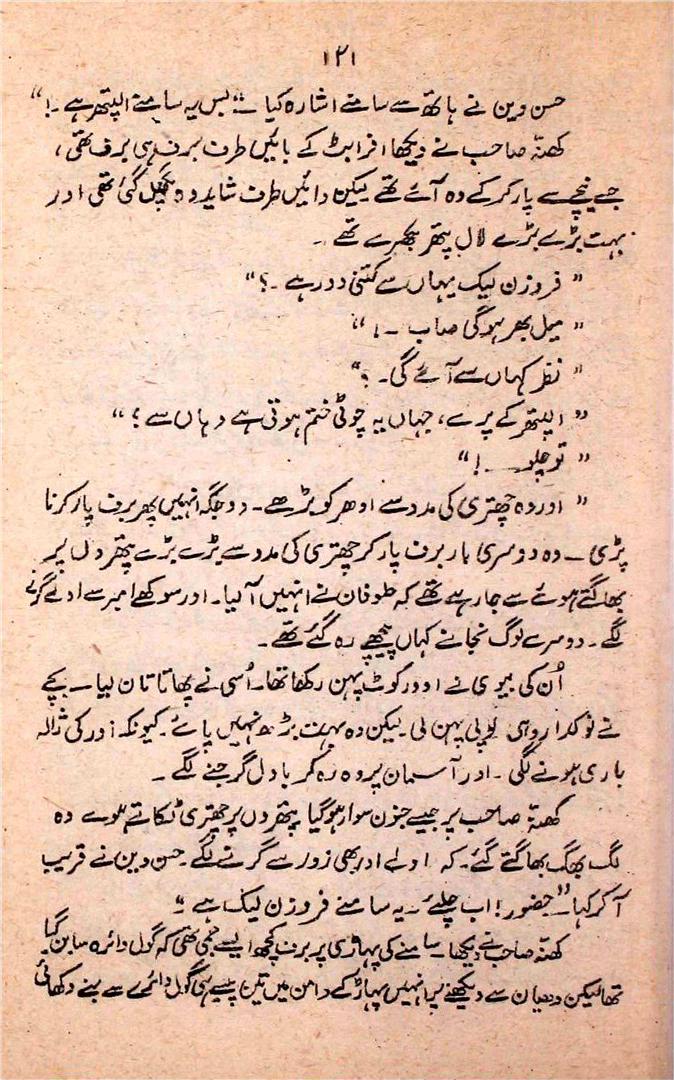 ۱۲۱
حسن دین نے ہاتھ سے سامنے اشارہ کیا ۔" بس یہ سامنے الپتھر ہے ۔!"
کھنّہ صاحب نے دیکھا افرابٹ کے بائیں طرف برف ہی برف تھی ،
جسے نیچے سے پار کر کے وہ آئے تھے لیکن دائیں طرف شاید وہ پگھل گئی تھی اور
بہت بڑے بڑے لال پتھر بکھرے تھے ۔
" فروزن لیک یہاں سے کتنی دور ہے ۔؟"
" میل بھر ہو گی صاب ۔!"
" نظر کہاں سے آئے گی ۔ ؟"
" الپتھر کے پرے، جہاں یہ چوٹی ختم ہوتی ہے وہاں سے !"
" تو چلو ــ !"
" اور وہ چھتری کی مدد سے اودھر کو بڑھے ۔ دو جگہ انہیں پھر برف پار کرنا
پڑی ۔ وہ دوسری بار برف پار کر چھتری کی مدد سے بڑے بڑے پتھروں پر
بھاگتے ہوئے سے جا رہے تھے کہ طوفان نے انہیں آ لیا ۔ اور سوکھے امبر سے اولے گرنے
لگے ۔ دوسرے لوگ نجانے کہاں پیچھے رہ گئے تھے ۔
اُن کی بیوی نے اوور کوٹ پہن رکھا تھا ۔ اُسی نے چھاتا تان لیا ۔ بچے
نے نوکدار وہی ٹوپی پہن لی ۔ لیکن وہ بہت بڑھ نہیں پائے ۔ کیونکہ زور کی ژالہ
باری ہونے لگی ۔ اور آسمان پر وہ رہ کر بادل گرجنے لگے ۔
کھنّہ صاحب پر جیسے جنون سوار ہو گیا پتھروں پر چھتری ٹکاتے ہوے وہ
لگ بھگ بھاگتے گئے ۔ کہ اولے اور بھی زور سے گرنے لگے ۔ حسن دین نے قریب
آ کر کہا ۔" حضور! اب چلیے ۔ یہ سامنے فروزن لیک ہے ۔"
کھنّہ صاحب نے دیکھا ۔ سامنے کی پہاڑی پر برف کچھ ایسے جمی تھی کہ گول دائرہ سا بن گیا
تھا لیکن دھیان سے دیکھنے پر انہیں پہاڑ کے دامن میں تین ایسے ہی گول دائرے سے بنے دکھائی